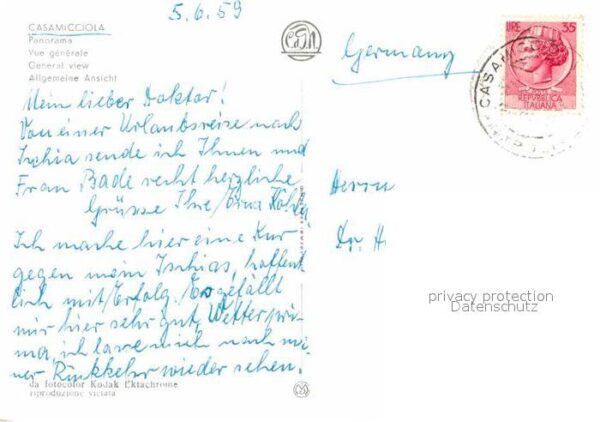 5.6.59
CASAMICCIOLA
Panorama
Vue générale
General view
Allgemeine Ansicht
Germany
LIRE 35
REPVBBLICA
ITALIANA
CASAMICC
Mein lieber Doktor!
Von einer Urlaubsreise nach
Ischia sende ich Ihnen und
Frau Bade recht herzliche
Grüsse Ihre Erna
Ich mache hier eine Kur
gegen mein Ischias, hoffent
lich mit Erfolg. Es gefällt
mir hier sehr gut, Wetter pri-
ma, ich lasse mich nach mei
ner Rückkehr wieder sehen.
Herrn
Dr. H
privacy protection
Datenschutz
da fotocolor Kodak Ektachrome
riproduzione vietata